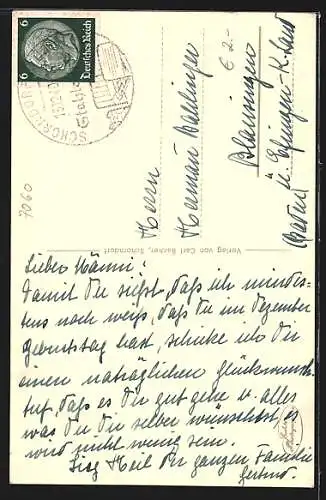 6 Deutsches Reich 6
SCHORNDORF
7060
€ 2.-
Herrn
Herman Barlinger
Blansingen
Verlag von Carl Bacher, Schorndorf
Lieber Männi!
Damit Du siehst, daß ich mindes-
tens noch weiß, daß Du im Dezember
Geburtstag hast, schicke ich Dir
einen naträglichen Glückwunsch
auf, daß es Dir gut gehe u. alles
was Du Dir selber wünschest, es
wird nicht wenig sein.
Sieg Heil Dir ganzen Familie
Gertrud.